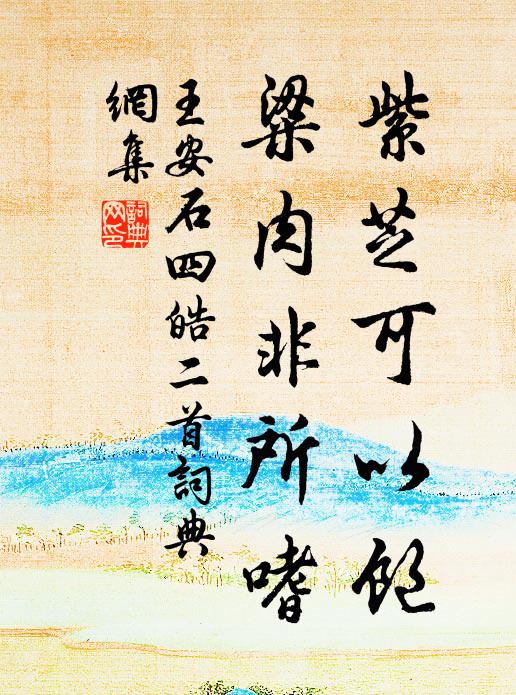 紫芝可以飽
粱肉非所嗜
王安石四皓二首詞典
網集
詞典網印